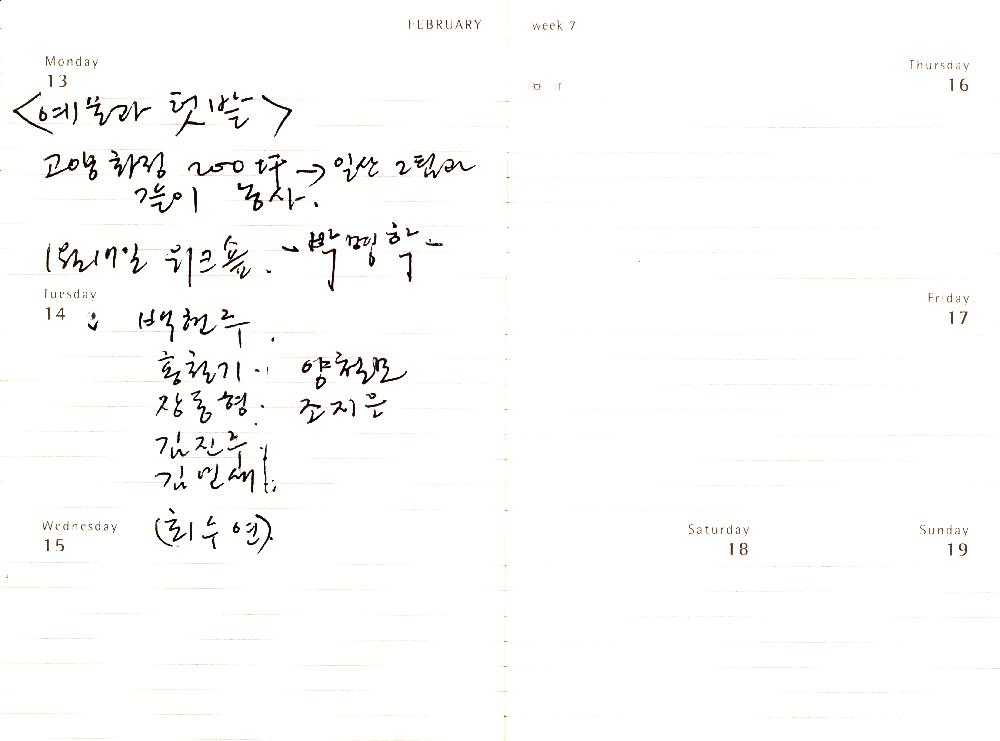 FEBRUARY
week 7
Monday
13
<예물과 텃밭>
고양 화정 200坪 → 일산 2팀과
같이 농사.
1월17일 워크숍. - 박명학 -
Tuesday
14
백현주.
황철기. 양철모
장동형. 조지은
김진주.
김민새
Wednesday
15
(최수연).
Thursday
16
Friday
17
Saturday
18
Sunday
19